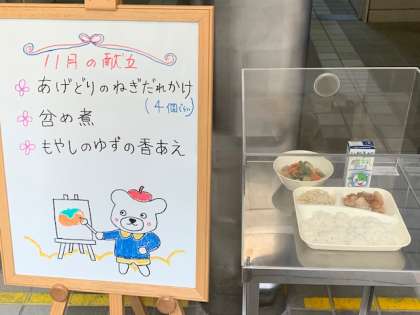 11月の献立
あげどりのねぎだれかけ
(4個ぐらい)
含め煮
もやしのゆずの香あえ